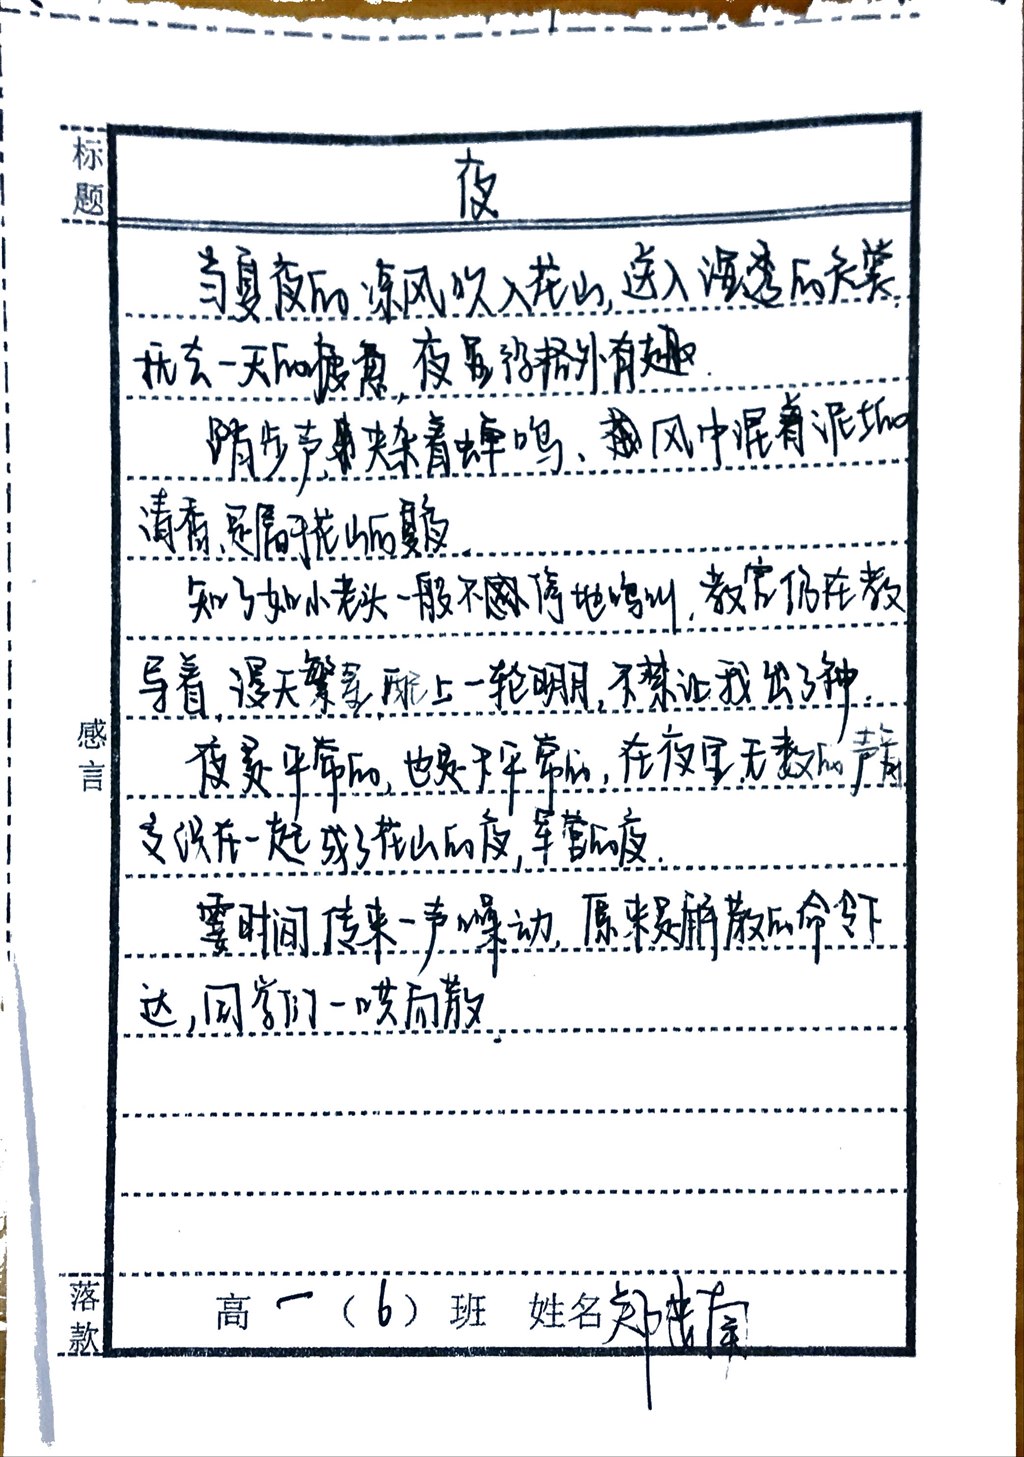 标题
夜
当夏夜的凉风吹入花山,送入湿透的衣裳,
抚去一天的疲惫,夜显得格外有趣.
踏步声夹杂着蝉鸣、风中混着泥土的
清香,是属于花山的夏夜.
知了如小老头一般不停地鸣叫,教官仍在教
导着,漫天繁星,配上一轮明月,不禁让我出了神.
夜是平常的,也是不平常的,在夜里,无数的声音
交织在一起成了花山的夜,军营的夜.
霎时间,传来一声噪动,原来是解散的命令下
达,同学们一哄而散.
感言
落款
高一(6)班 姓名 郑